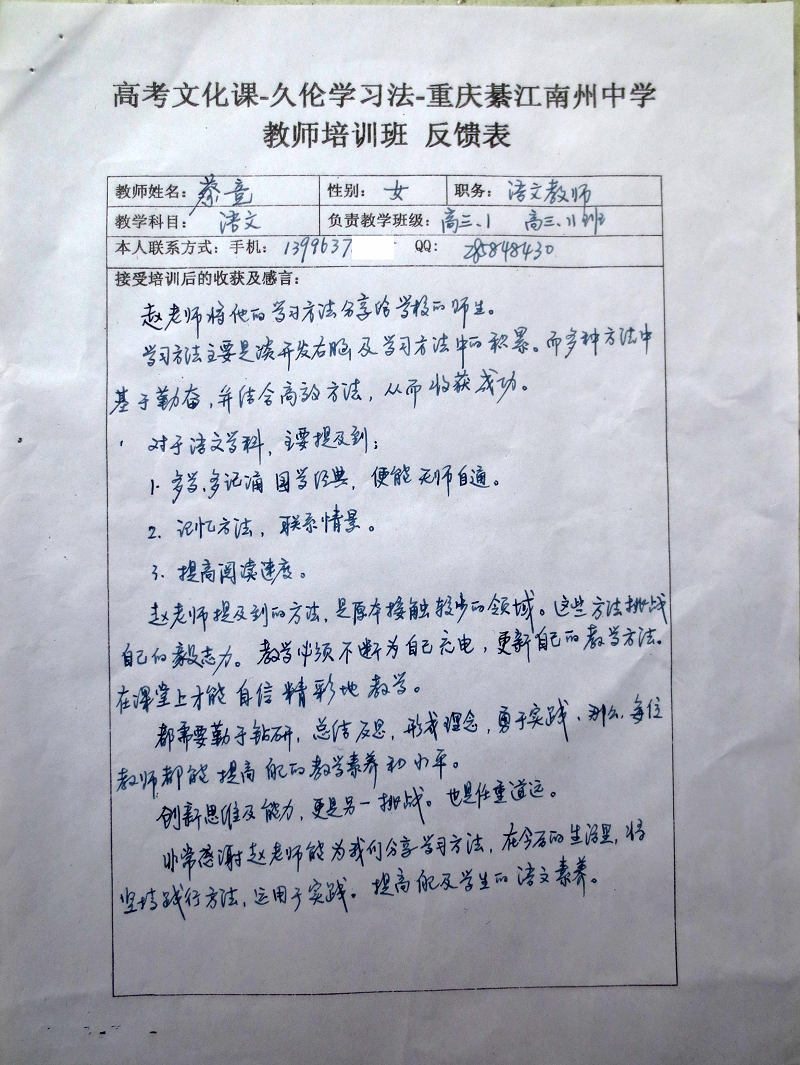 高考文化课-久伦学习法-重庆綦江南州中学
教师培训班 反馈表
教师姓名：蔡竟 性别：女 职务：语文教师
教学科目：语文 负责教学班级：高三.1 高三.11班
本人联系方式：手机：1399637 QQ：285848430
接受培训后的收获及感言：
赵老师将他的学习方法分享给学校的师生。
学习方法主要是谈开发右脑及学习方法中的积累。而多种方法中
基于勤奋，并结合高效方法，从而收获成功。
对于语文学科，主要提及到：
1. 多学、多记诵国学经典，便能无师自通。
2. 记忆方法，联系情景。
3. 提高阅读速度。
赵老师提及到的方法，是原本接触较少的领域。这些方法挑战
自己的毅志力。教学必须不断为自己充电，更新自己的教学方法。
在课堂上才能自信精彩地教学。
都需要勤于钻研，总结反思，形成理念，勇于实践。那么，每位
教师都能提高自己的教学素养和水平。
创新思维及能力，更是另一挑战。也是任重道远。
非常感谢赵老师能为我们分享学习方法，在今后的生活里，将
坚持践行方法，运用于实践。提高自己及学生的语文素养。